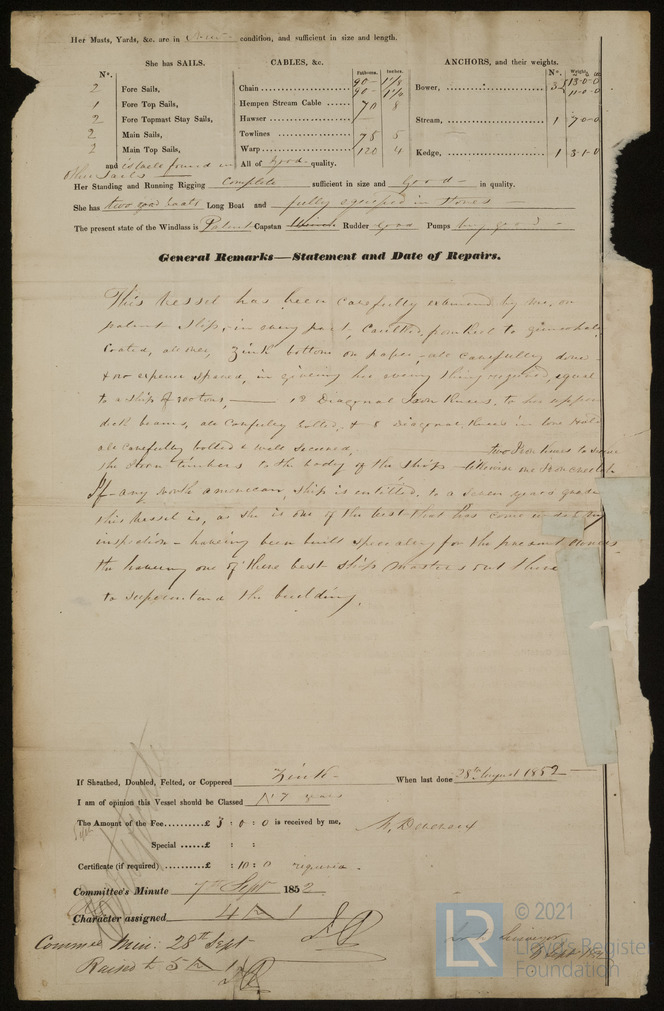 Her Masts, Yards, &c. are in New condition, and sufficient in size and length.
She has SAILS.
CABLES, &c.
ANCHORS, and their weights.
N°.
Fathoms. Inches.
N°. Weight.
2 Fore Sails,
1 Fore Top Sails,
2 Fore Topmast Stay Sails,
2 Main Sails,
2 Main Top Sails,
and
other sails
Chain 90
90
Hempen Stream Cable 70 8
Hawser
Towlines 75 5
Warp 120 4
All of good quality.
Bower, 3 13-0-0
11-0-0
Stream, 1 7-0-0
Kedge, 1 3-1-0
Her Standing and Running Rigging Complete sufficient in size and Good in quality.
She has two good boats Long Boat and fully equiped in Stores
The present state of the Windlass is Patent Capstan Rudder Good Pumps very good
General Remarks—Statement and Date of Repairs.
This vessel has been carefully examined by me, on
patent slip, in every part, Caulked, from keel to gunwhale
Coated, all over, Zink bottom on paper, all carefully done
& no expence spared, in giveing her every thing required, equal
to a ship of tons, — 12 Diagonal Iron Knees, to her upper
deck beams, all carefuly bolted, & 8 Diagonal Knees in lower Hold
all carefully bolted & well secured, two Iron Knees to secure
the Stern timbers to the body of the ship likewise one Iron
If any north american, ship is entitled, to a seven years grade
this vessel is, as she is one of the best that has come under my
inspection - haveing been built specialey for the present owners
the haveing one of there best ship masters out there
to superintend the building.
If Sheathed, Doubled, Felted, or Coppered Zink When last done 28th August 1852
I am of opinion this Vessel should be Classed 7 years
The Amount of the Fee £ 3 : 0 : 0 is received by me,
Special £ : :
Certificate (if required) £ : 10 : 0 required.
Committee's Minute 7th Sept 1852
Character assigned 4 A 1
Committee Min: 28th Sept
Raised to 5 A 1
© 2021
LR
Lloyd's Register
Foundation